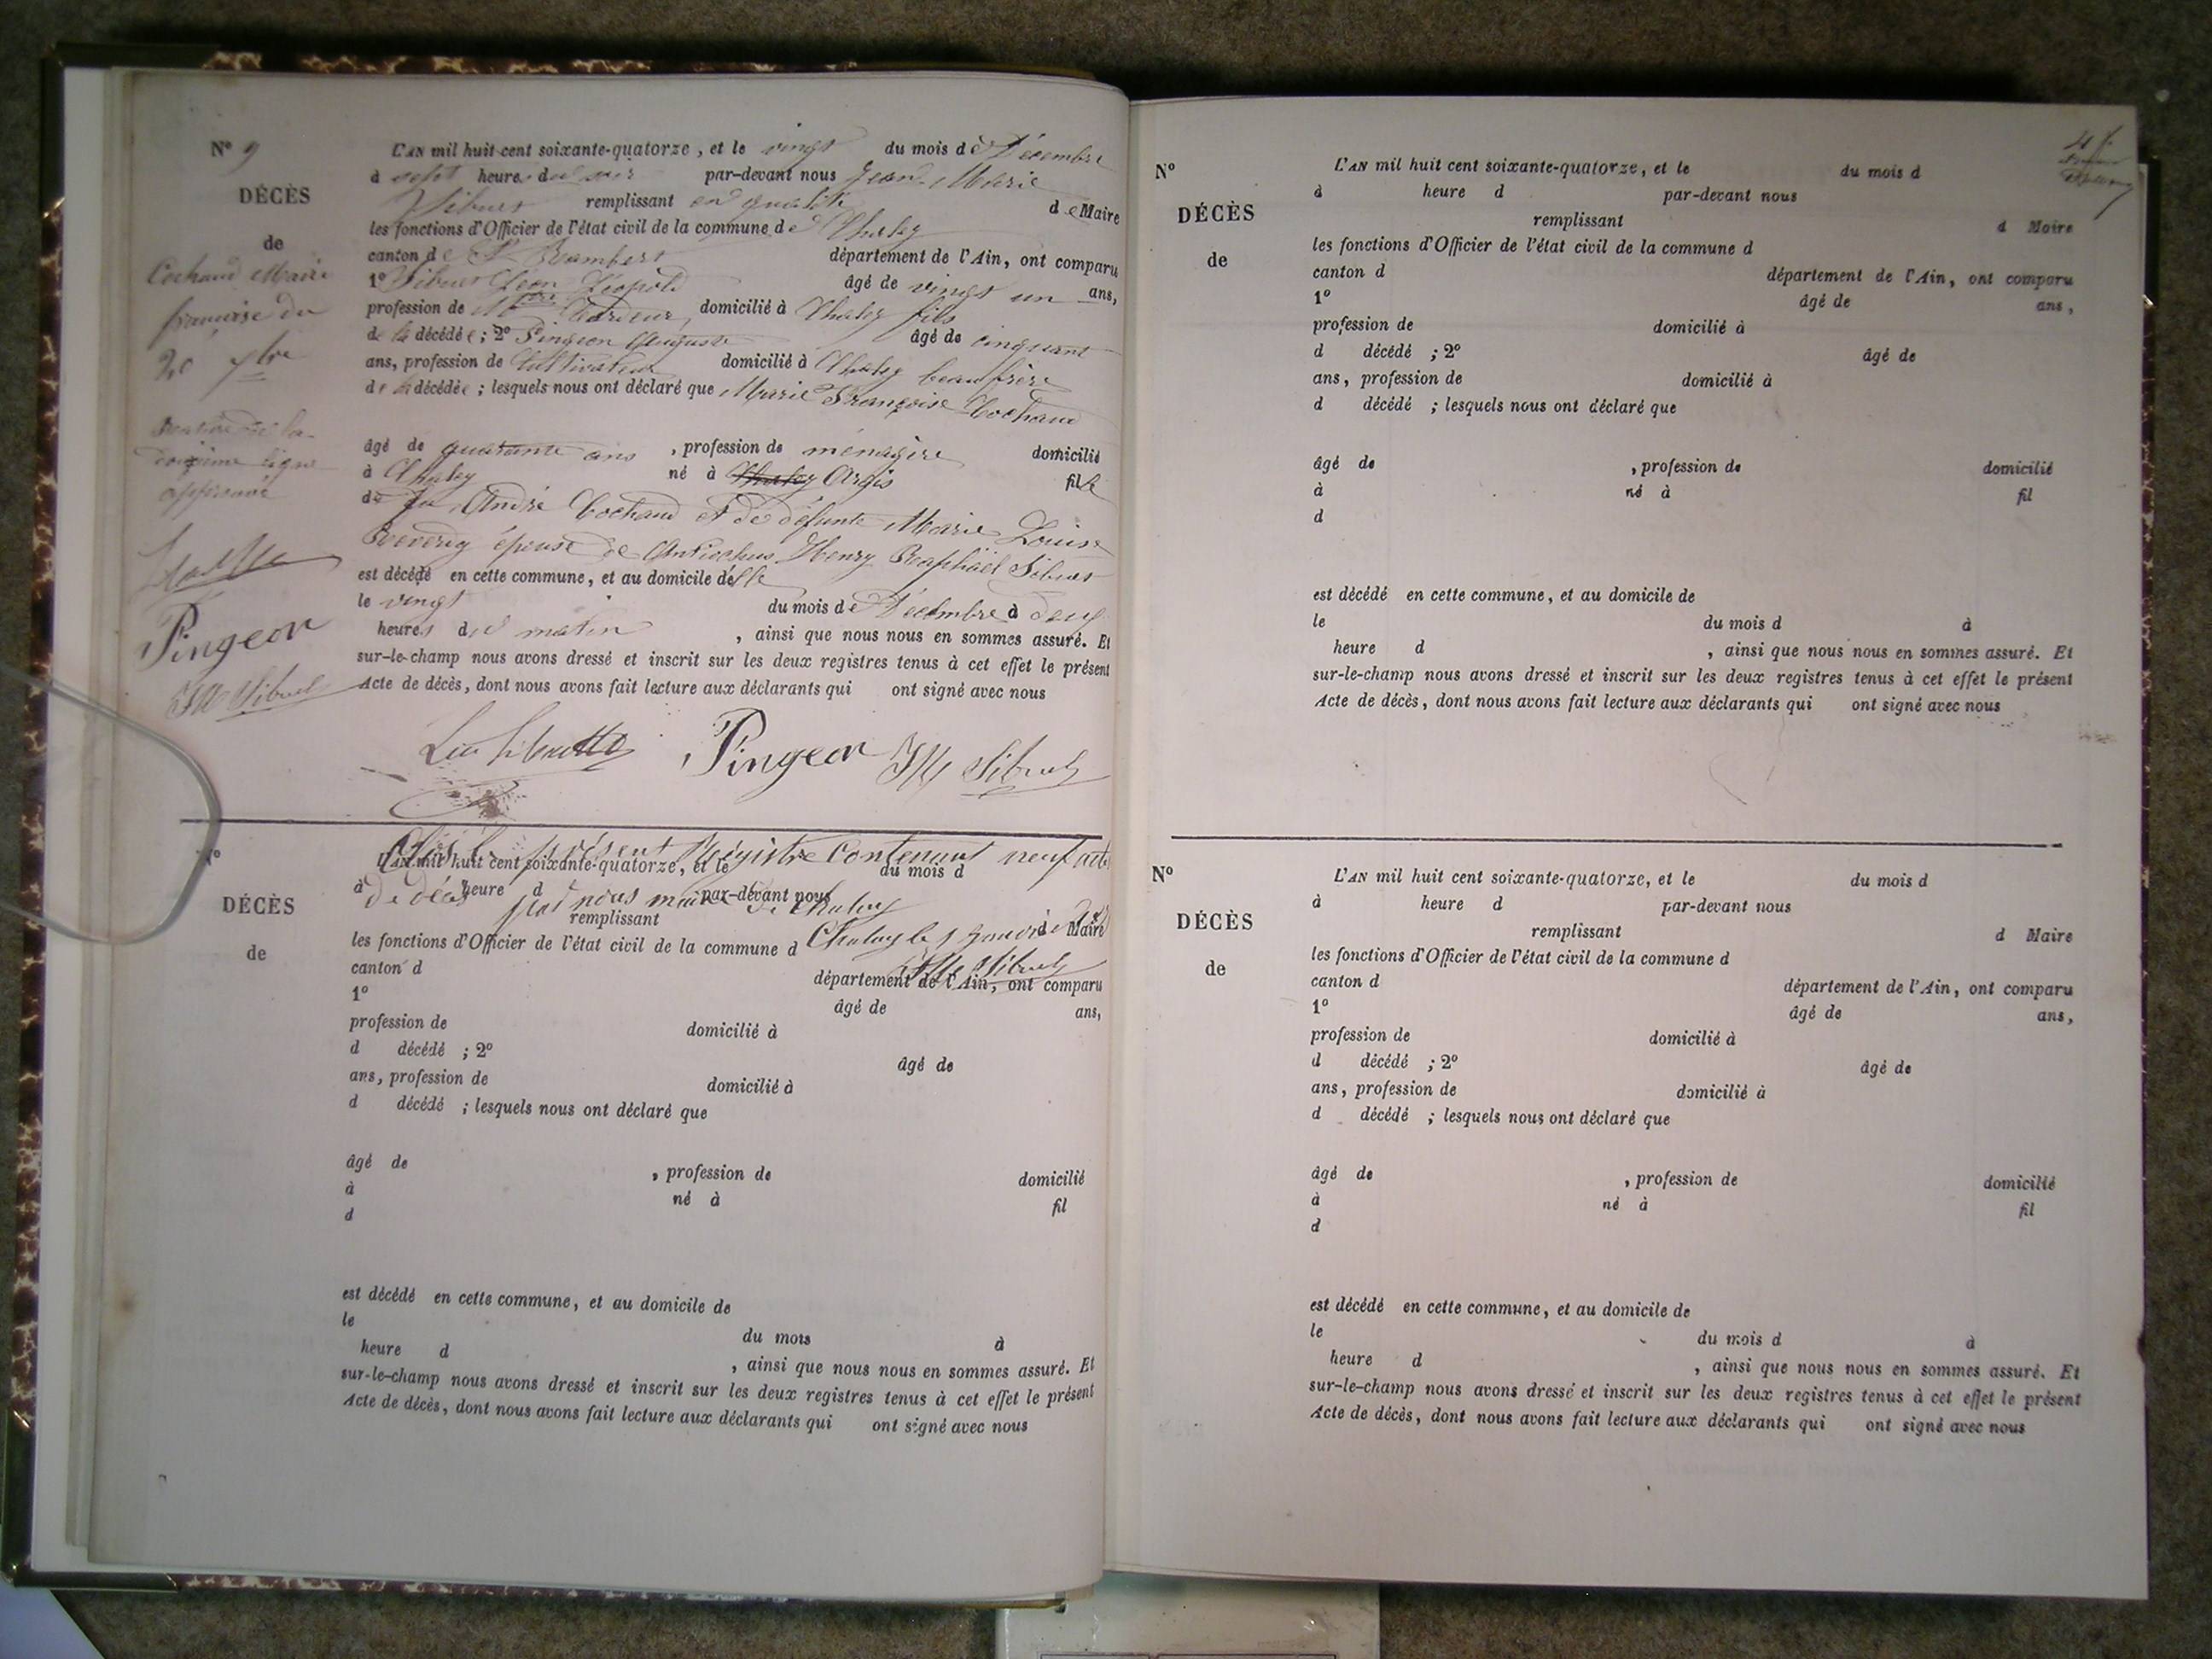 Nº 9
DÉCÈS
de
Cochaud Marie
française du
20 Xbre
Rature de la
douzième ligne
approuvée
Pingeon
JM Sibuet
L'AN mil huit cent soixante-quatorze, et le vingt du mois de Décembre
à sept heures du soir par-devant nous Jean-Marie
Sibuet remplissant en qualité de Maire
les fonctions d'Officier de l'état civil de la commune de Chaley
canton de St Rambert département de l'Ain, ont comparu
1º Sibuet Léon Léopold âgé de vingt un ans,
profession de Cardeur, domicilié à Chaley fils
de la décédée; 2º Pingeon Auguste âgé de cinquante
ans, profession de Cultivateur domicilié à Chaley beau frère
de la décédée; lesquels nous ont déclaré que Marie Françoise Cochaud
âgé de quarante ans, profession de ménagère domicilié
à Chaley né à Chaley Argis fille
de feu André Cochaud et de défunte Marie Louise
Reverdy épouse de Antiochus Henry Raphaël Sibuet
est décédé en cette commune, et au domicile d'elle
le vingt du mois de Décembre à deux
heures du matin, ainsi que nous nous en sommes assuré. Et
sur-le-champ nous avons dressé et inscrit sur les deux registres tenus à cet effet le présent
Acte de décès, dont nous avons fait lecture aux déclarants qui ont signé avec nous
Pingeon JM Sibuet
Clos le présent Régistre Contenant neuf actes
de décès par nous maire de Chaley
Chaley le 1 Janvier
JM Sibuet
Nº
DÉCÈS
de
L'AN mil huit cent soixante-quatorze, et le du mois d
à heure d par-devant nous
remplissant d Maire
les fonctions d'Officier de l'état civil de la commune d
canton d département de l'Ain, ont comparu
1º âgé de ans,
profession de domicilié à
d décédé ; 2º âgé de
ans, profession de domicilié à
d décédé ; lesquels nous ont déclaré que
âgé de , profession de domicilié
à né à fil
d
est décédé en cette commune, et au domicile de
le du mois à
heure d , ainsi que nous nous en sommes assuré. Et
sur-le-champ nous avons dressé et inscrit sur les deux registres tenus à cet effet le présent
Acte de décès, dont nous avons fait lecture aux déclarants qui ont signé avec nous
Nº
DÉCÈS
de
L'AN mil huit cent soixante-quatorze, et le du mois d
à heure d par-devant nous
remplissant d Maire
les fonctions d'Officier de l'état civil de la commune d
canton d département de l'Ain, ont comparu
1º âgé de ans,
profession de domicilié à
d décédé ; 2º âgé de
ans, profession de domicilié à
d décédé ; lesquels nous ont déclaré que
âgé de , profession de domicilié
à né à fil
d
est décédé en cette commune, et au domicile de
le du mois d à
heure d , ainsi que nous nous en sommes assuré. Et
sur-le-champ nous avons dressé et inscrit sur les deux registres tenus à cet effet le présent
Acte de décès, dont nous avons fait lecture aux déclarants qui ont signé avec nous
Nº
DÉCÈS
de
L'AN mil huit cent soixante-quatorze, et le du mois d
à heure d par-devant nous
remplissant d Maire
les fonctions d'Officier de l'état civil de la commune d
canton d département de l'Ain, ont comparu
1º âgé de ans,
profession de domicilié à
d décédé ; 2º âgé de
ans, profession de domicilié à
d décédé ; lesquels nous ont déclaré que
âgé de , profession de domicilié
à né à fil
d
est décédé en cette commune, et au domicile de
le du mois d à
heure d , ainsi que nous nous en sommes assuré. Et
sur-le-champ nous avons dressé et inscrit sur les deux registres tenus à cet effet le présent
Acte de décès, dont nous avons fait lecture aux déclarants qui ont signé avec nous